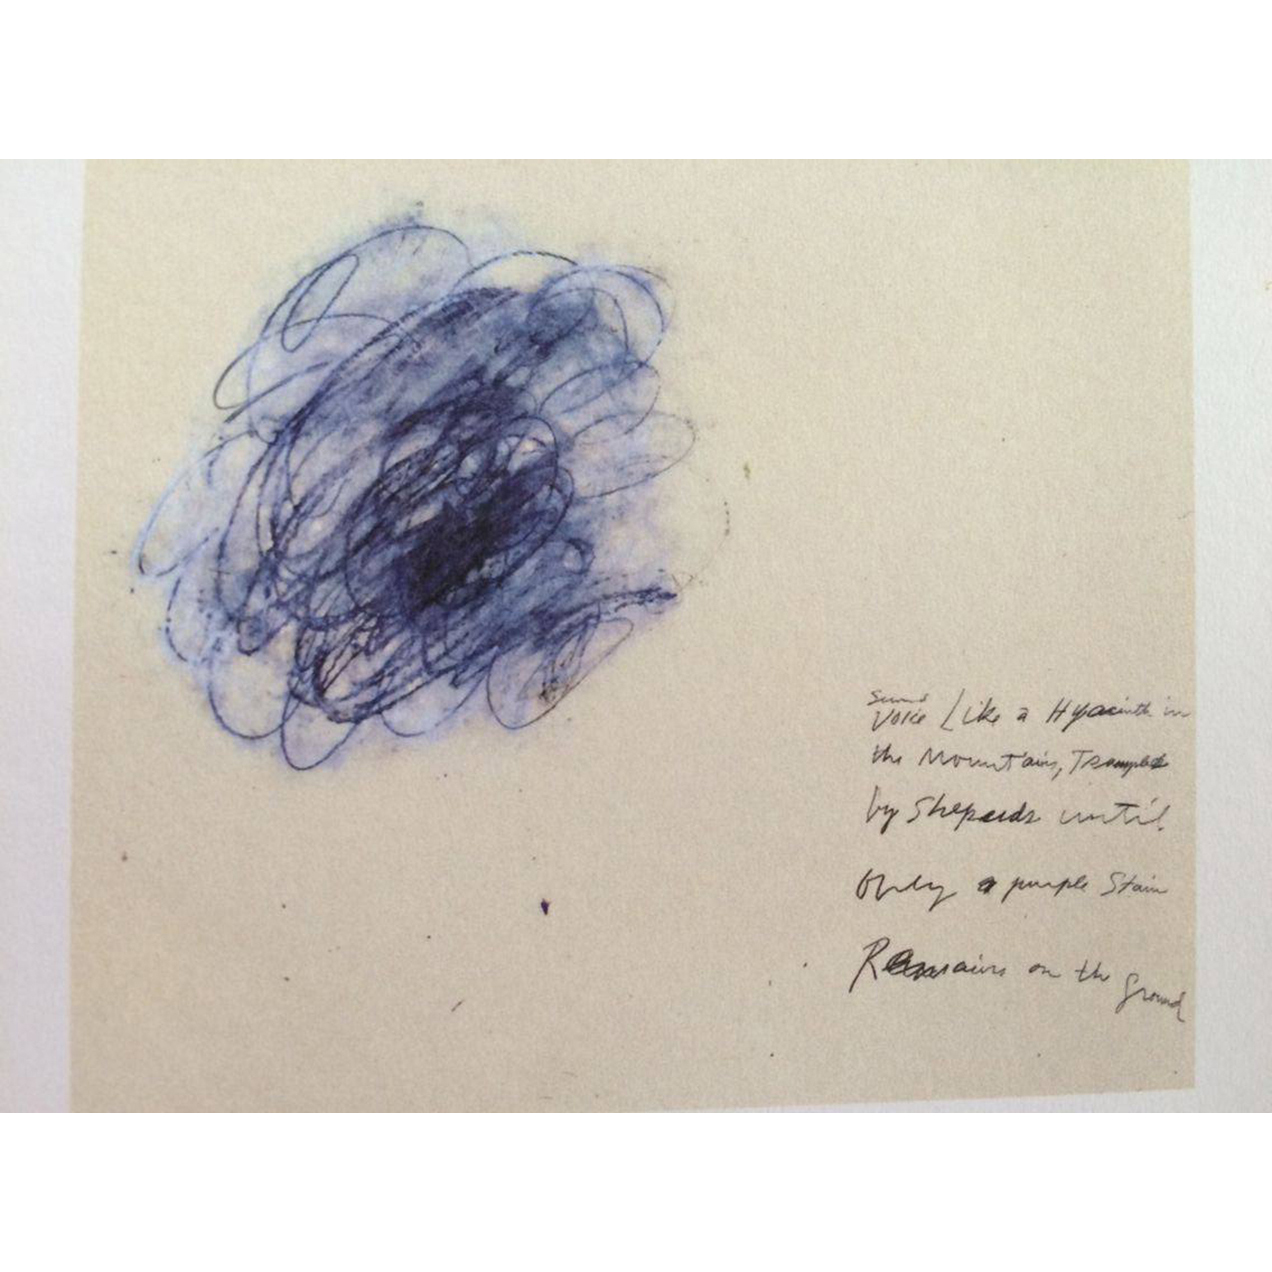 Voice Like a Hyacinth in
the Mountains, Trampled
by Sheperds until
Only a purple Stain
Remains on the ground